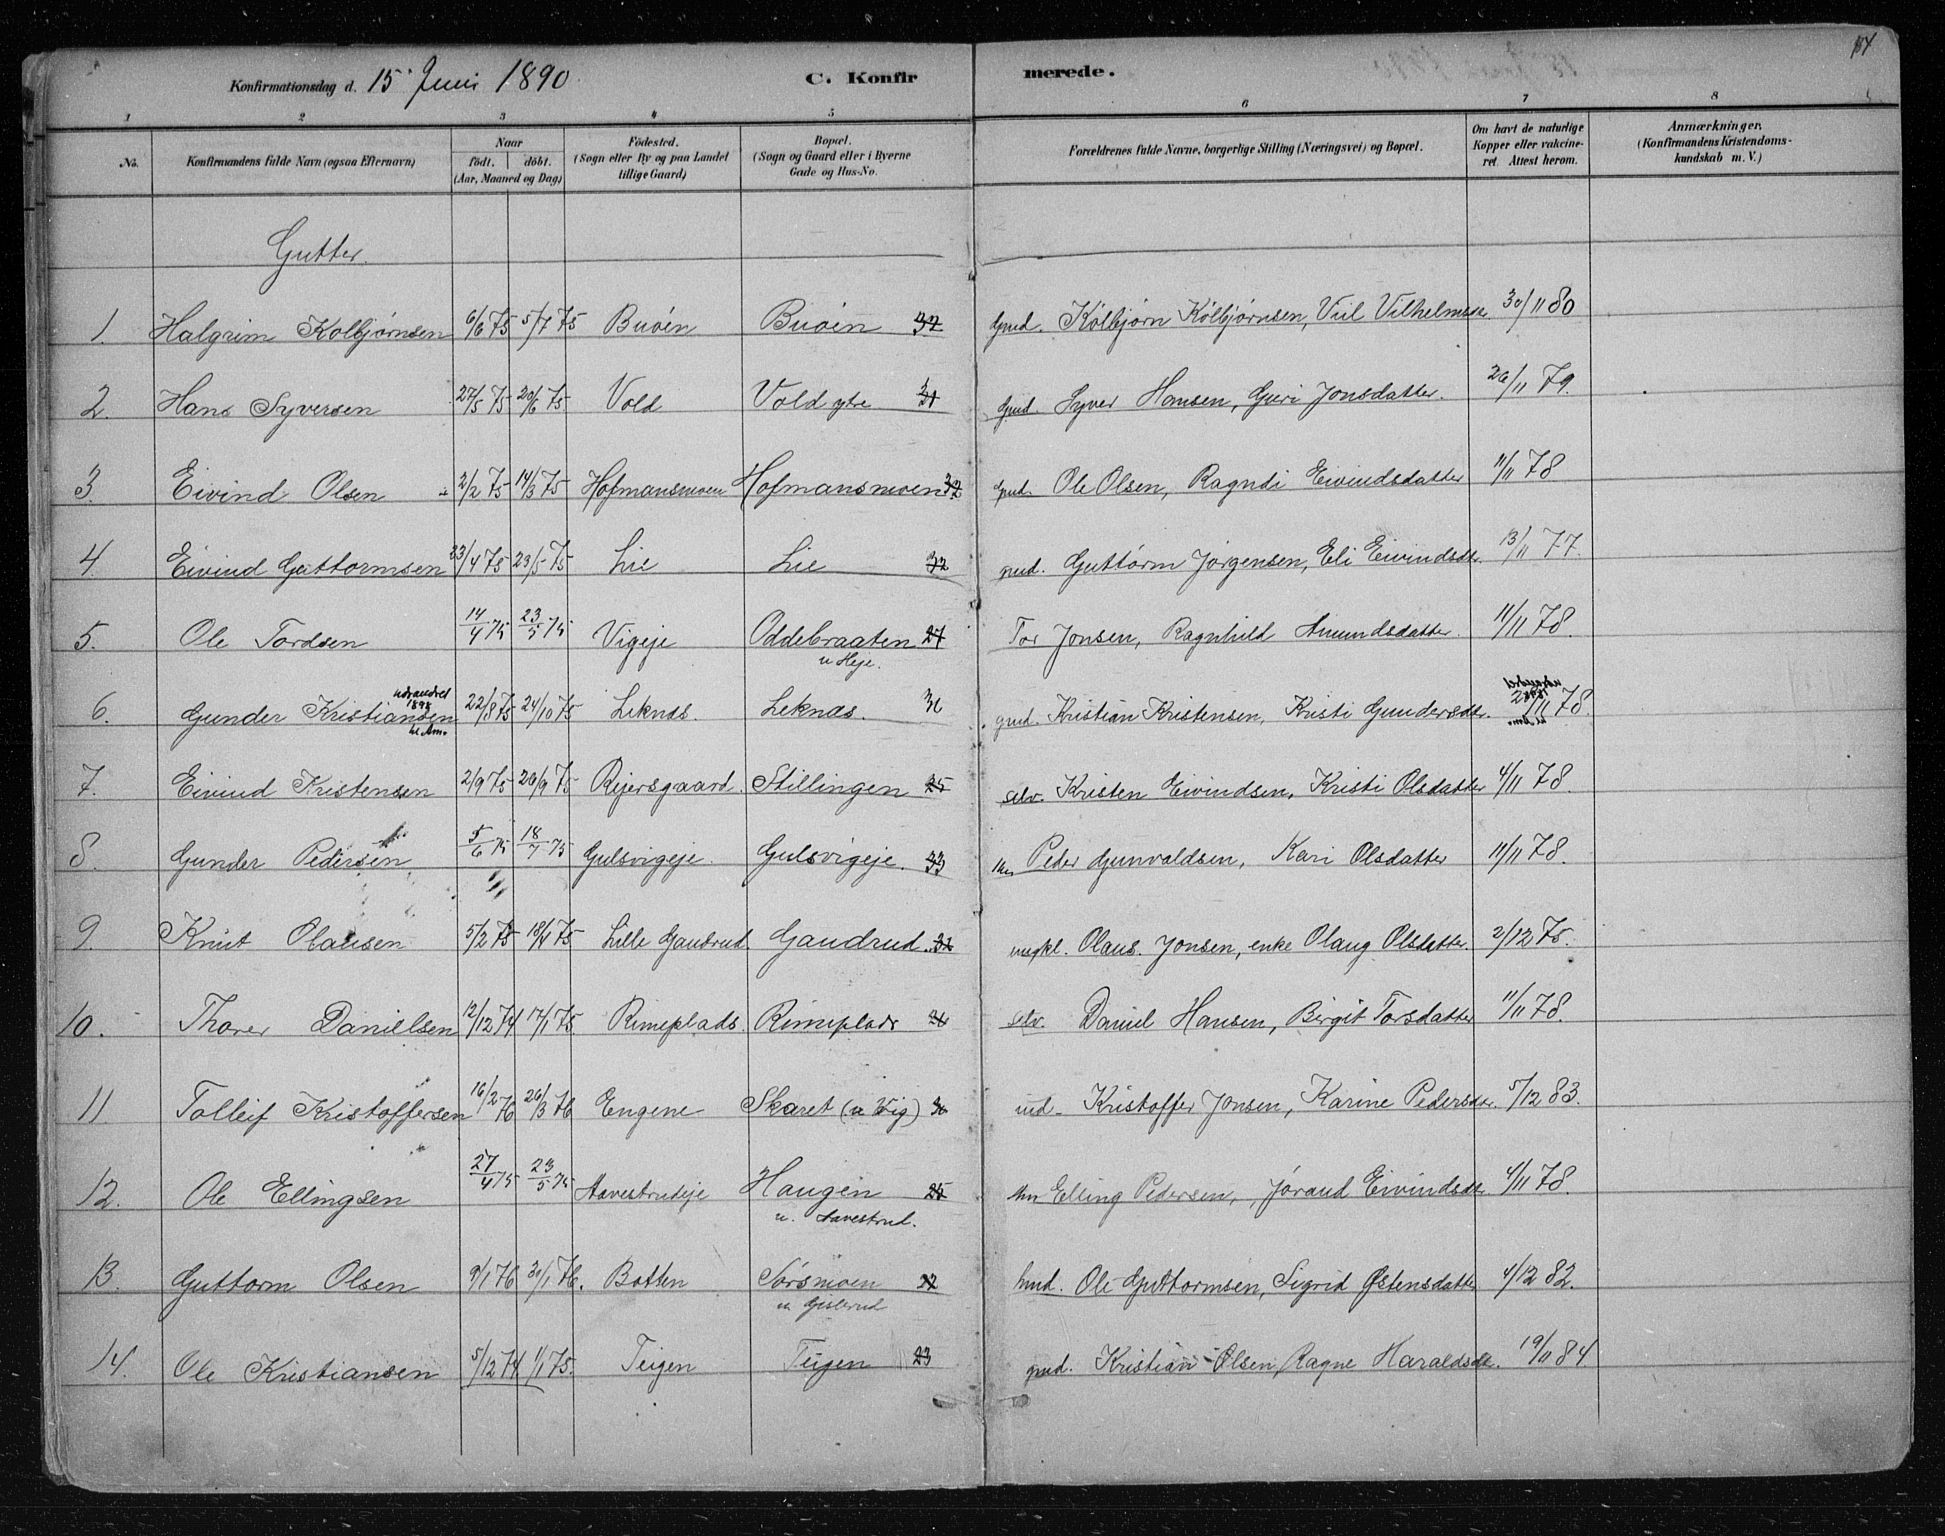 Konfirmationsdag d. 15 Juni 1890
C. Konfirmerede.
1 2 3 4 5 6 7 8
No. Konfirmandens fulde Navn (ogsaa Efternavn) Naar født. døbt. (Aar, Maaned og Dag) Fødested. (Sogn eller By og paa Landet tillige Gaard) Bopæl. (Sogn og Gaard eller i Byerne Gade og Hus-No. Forældrenes fulde Navne, borgerlige Stilling (Næringsvei) og Bopæl. Om havt de naturlige Kopper eller vakcineret. Attest herom. Anmærkninger. (Konfirmandens Kristendomskundskab m. V.)
Gutter.
1. Halgrim Kolbjørnsen 6/6 75 5/7 75 Buøen Buøen 32 Gmd. Kolbjørn Kolbjørnsen, Viil Vilhelmsdtr 30/11 80
2. Hans Syversen 27/5 75 20/6 75 Vold Vold ytre 31 Gmd. Syver Hansen, Guri Jonsdatter. 26/11 79.
3. Eivind Olsen 2/2 75 14/3 75 Hofmansmoen Hofmansmoen 32 gmd. Ole Olsen, Ragndi Eivindsdatter 11/11 78
4. Eivind Guttormsen 23/4 75 23/5 75 Lie Lie 32 gmd. Guttorm Jørgensen, Eli Eivindsdtr. 13/11 77.
5. Ole Tordsen 14/4 75 23/5 75 Vigeje Oddebraaten 27 Tor Jonsen, Ragnhild Amundsdatter. 11/11 78.
u Heje.
6. Gunder Kristiansen 22/8 75 24/10 75 Leknas. Leknas. 31 gmd. Kristian Kristensen, Kristi Gundersdtr. 11 78.
udvandret 1898 til Am.
7. Eivind Kristensen 2/9 75 26/9 75 Rejersgaard. Stillingen 25 selv. Kristen Eivindsen, Kristi Olsdatter 4/11 78.
8. Gunder Pedersen 5/6 75 18/7 75 Gulsvigeje. Gulsvigeje. 33 Peder Gunvaldsen, Kari Olsdatter 11/11 78.
9. Knut Olausen 5/2 75 18/4 75 Lille Gandrud Gandrud. Olaus. Jonsen, enke Olaug Olsdatter. 2/12 75.
10. Thorer Daniellsen 12/12 74 17/1 75 Rimeplads. Rimeplads selv. Daniel Hansen, Birgit Torsdatter 11/11 78.
11. Tolleif Kristoffersen 16/2 76 26/3 76 Engene Skaret (u Vig) 30 Kristoffer Jonsen, Karine Pedersdtr. 5/12 83.
12. Ole Ellingsen 27/4 75 23/5 75 Aavestrudeje Haugen 25 Elling Pedersen, Jørand Eivindsdtr. 4/11 78.
u. Aavestrud.
13. Guttorm Olsen 9/1 76 30/1 76. Botten Sørsmoen 22 hmd. Ole Guttormsen, Sigrid Østensdatter 4/12 82.
u. Gislerud
14. Ole Kristiansen 5/12 74 1/1 75. Teigen Teigen 23 gmd. Kristian Olsen, Ragne Haraldsdtr. 19/11 84